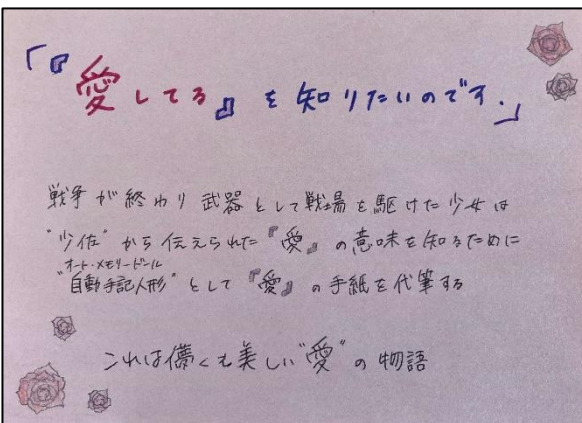 「『愛してる』を知りたいのです.」
戦争が終わり武器として戦場を駆けた少女は
"少佐"から伝えられた『愛』の意味を知るために
オート・メモリードール
"自動手記人形"として『愛』の手紙を代筆する
これは儚くも美しい"愛"の物語